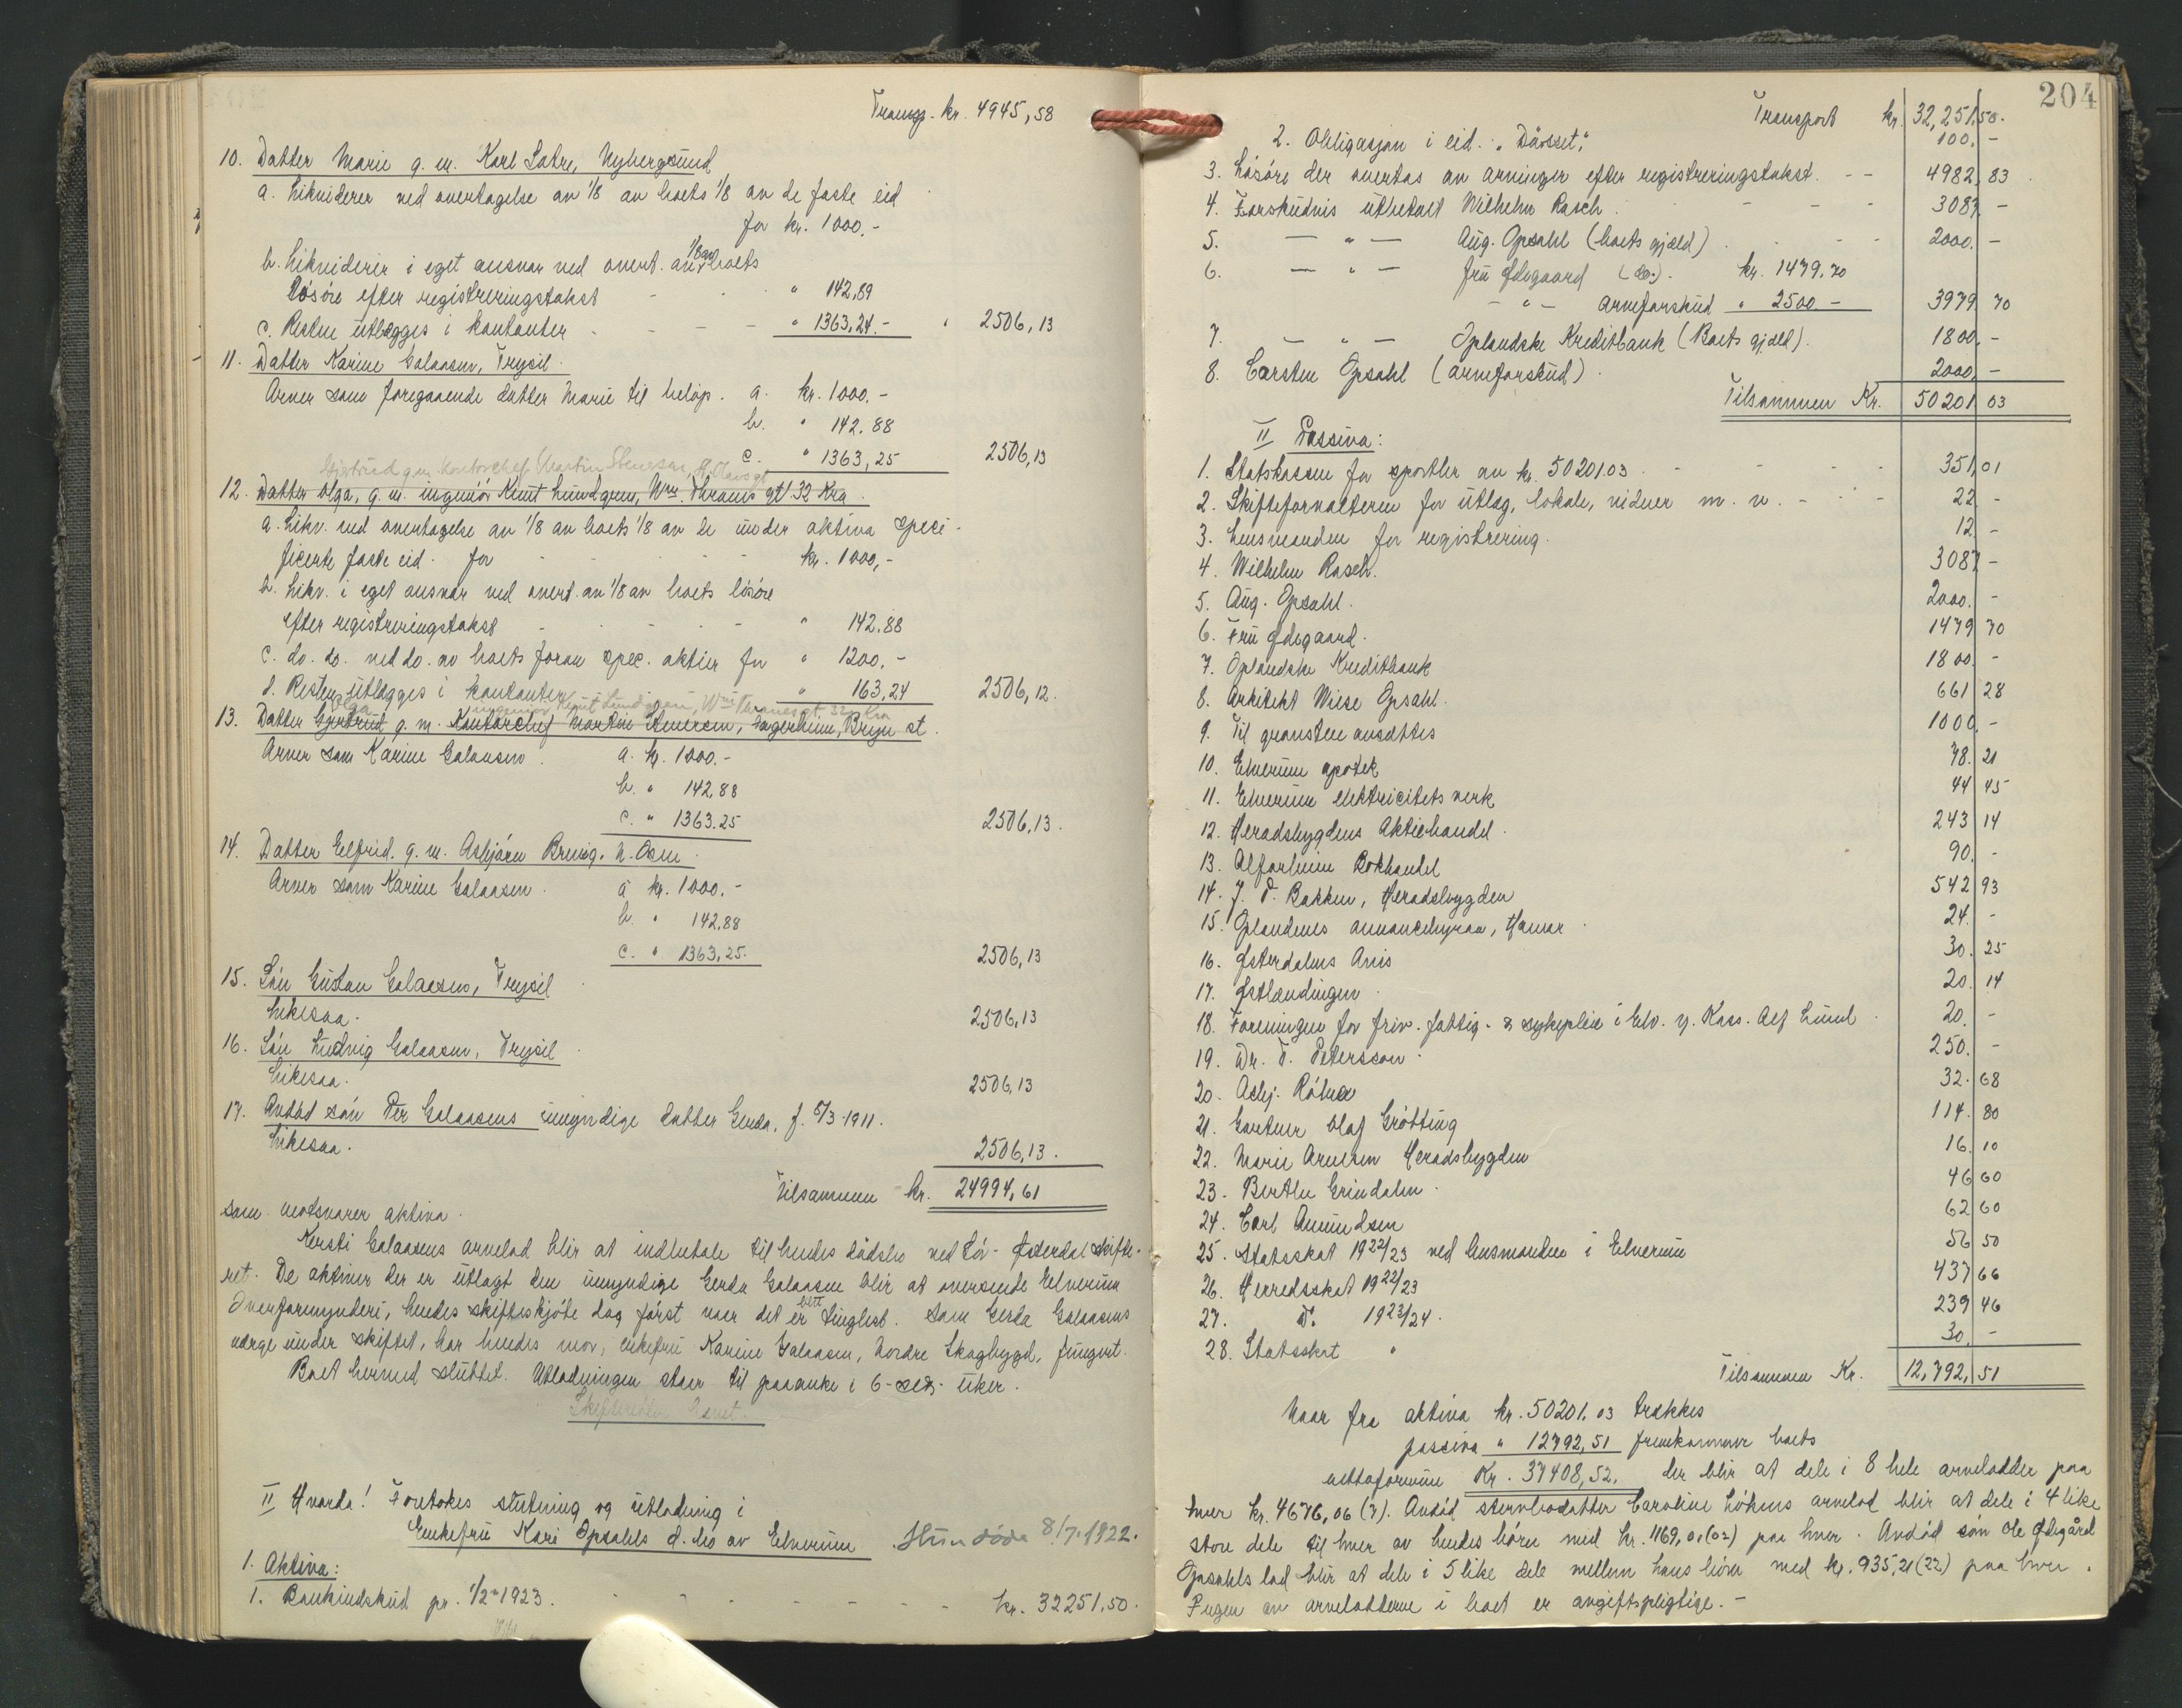 Transp. kr. 4945,58
10. Datter Marie g. m. Karl Sætre, Nybergsund
a. Likviderer ved overtagelse av 1/8 av boets 1/8 av de faste eid
for kr. 1000.-
b. Likviderer i eget ansvar ved overt. av 1/8 av boets
lösöre efter registreringstakst - - " 142,89
c. Resten utlægges i kontanter - - - " 1363,24.- " 2506,13
11. Datter Karine Galaasen, Trysil.
Arver som foregaaende datter Marie til belöp. a. kr. 1000.-
b. " 142.88
c. " 1363,25 2506,13
Gjertrud g.m. Kontorchef Martin Stenersen, St. Olavsgt
12. Datter Olga, g. m. ingeniör Knut Lundgren, Wm. Thranes gt 32 Kra.
a. Likv. ved overtagelse av 1/8 av boets 1/8 av de under aktiva speci-
ficerte faste eid. for - - - kr. 1000,-
b. Likv. i eget ansvar ved overt. av 1/8 av boets lösöre
efter registreringstakst - - - " 142.88
c. do. do. ved do. av boets foran spec. aktier for " 1200.-
d. Resten utlægges i kontanter " 163,24 2506,12.
Olga ingeniör Knut Lundgren, Wm Thranesgt. 32 Kra
13. Datter Gjertrud g. m. Kontorchef Martin Stenersen, Hagerheim, Bryn st.
Arver som Karine Galaasen. a. kr. 1000.-
b. " 142,88
c. " 1363.25 2506,13.
14. Datter Elfrid. g. m. Asbjörn Brenig. N. Osen.
Arver som Karine Galaasen. a kr. 1000.-
b. " 142,88
c. " 1363,25. 2506,13
15. Sön Gustav Galaasen, Trysil
Likesaa. 2506,13
16. Sön Ludvig Galaasen, Trysil
Likesaa. 2506,13
17. Avdöd sön Per Galaasens umyndige datter Gerda, f. 5/3-1911.
Likesaa. 2506,13.
Tilsammen kr. 24994,61
som motsvarer aktiva.
Kersti Galaasens arvelod blir at indbetale til hendes dödsbo ved Sör-Österdal skifte-
ret. De aktiver der er utlagt den umyndige Gerda Galaasen blir at oversende Elverum
Overformynderi, hendes skifteskjöte dog först naar det er blit tinglest. Som Gerda Galaasens
værge under skiftet, har hendes mor, enkefru Karine Galaasen, Nordre Skogbygd, fungert.
Boet hermed sluttet. Utlodningen staar til paaanke i 6-seks-uker.
Skifteretten hævet.
II Hvorda! Foretokes slutning og utlodning i
Enkefru Kari Opsahls d. bo av Elverum. Hun döde 8/7. 1922.
1. Aktiva:
1. Bankindskud pr. 1/2-1923. - - - - - - kr. 32251,50.
204
Transport kr. 32,251 50.
2. Obligasjon i eid. "Dösset". 100. -
3. Lösöre der overtas av arvinger efter registreringstakst. - - 4982, 83
4. Forskudvis utbetalt Wilhelm Rasch. - - - 3087 -
5. - " - Aug. Opsahl (boets gjæld) - - - 2000. -
6. - " - fru Ødegaard (do.). kr. 1479.70
- " - arveforskud " 2500.- 3979 70
7. - " - Oplandske Kreditbank (Boets gjæld). 1800. -
8. Carsten Opsahl (arveforskud). 2000. -
Tilsammen Kr. 50201 03
II Passiva:
1. Statskassen for sportler av kr. 50201.03 - - - 351,01
2. Skifteforvalteren for utlæg, lokale, vidner m. v. - - - 22 -
3. Lensmanden for registrering. 12 -
4. Wilhelm Rasch. 3087 -
5. Aug. Opsahl. 2000. -
6. Fru Ødegaard. 1479 70
7. Oplandske Kreditbank 1800 -
8. Arkitekt Wiese Opsahl. 661 28
9. Til gravsten avsættes 1000. -
10. Elverum apotek 78. 21
11. Elverum elektricitets verk 44 45
12. Heradsbygdens Aktiehandel. 243 14
13. Alfarheim Bokhandel 90. -
14. J. P. Bakken, Heradsbygden 542 93
15. Oplandenes annoncebyraa, Hamar 24. -
16. Østerdalens Avis 30. 25
17. Østlændingen. 20. 14
18. Foreningen for friv. fattig- & sykepleie i Elv. v. Kass. Alf Lund 20. -
19. Dr. P. Petersson. 250. -
20. Asbj. Rötnæ 32. 68
21. Gartner Olaf Grötting 114. 80
22. Marie Arnesen Heradsbygden 16. 10
23. Berthe Grindalen. 46 60
24. Carl Amundsen 62 60
25. Statsskat 1922/23 ved lensmanden i Elverum 56 50
26. Herredsskat 1922/23 437 66
27. Do 1923/24. 239 46
28. Statsskat " 30. -
Tilsammen Kr. 12,792, 51
Naar fra aktiva kr. 50201.03 trækkes
passiva " 12792,51 fremkommer boets
nettoformue Kr. 37408,52. der blir at dele i 8 hele arvelodder paa
hver kr. 4676,06 (7). Avdöd stervbodatter Caroline Lökens arvelod blir at dele i 4 like
store dele til hver av hendes börn med kr. 1169,01(02) paa hver. Avdöd sön Ole Ødegård
Opsahls lod blir at dele i 5 like dele mellem hans börn med kr. 935,21(22) paa hver.
Ingen av arveloddene i boet er avgiftspligtige.-